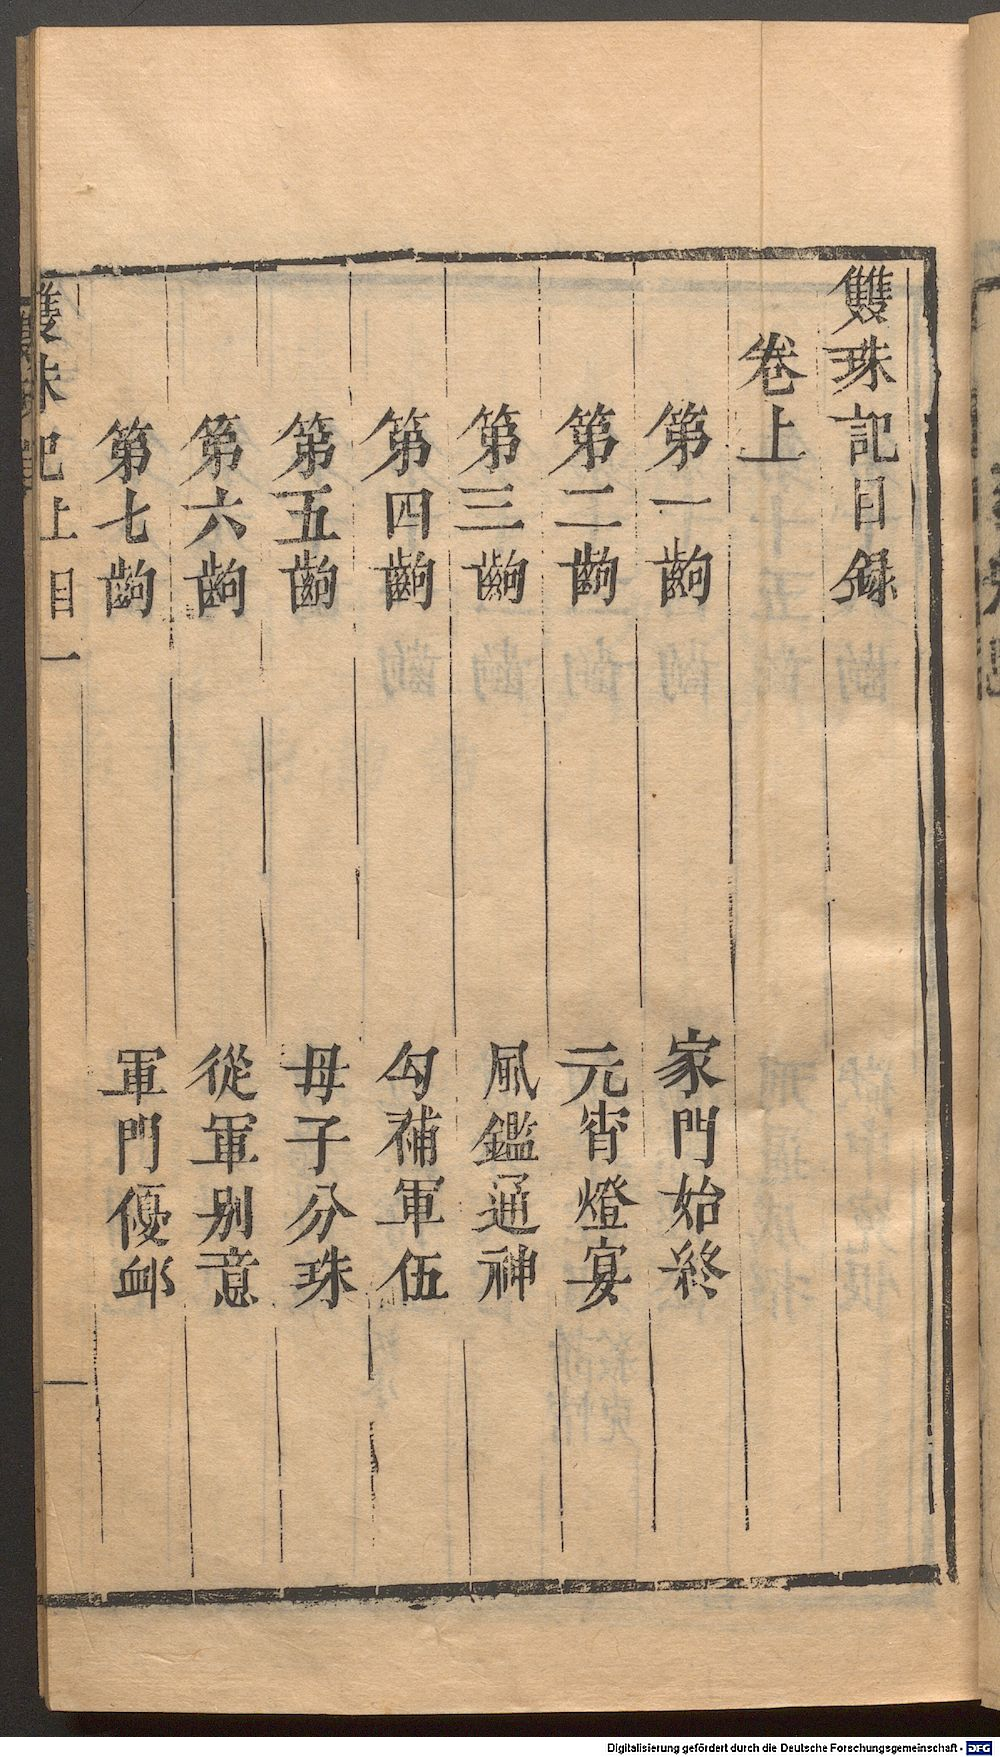 雙珠記目録
卷上
第一齣 家門始終
第二齣 元宵燈宴
第三齣 風鑑通神
第四齣 勾補軍伍
第五齣 母子分珠
第六齣 從軍别意
第七齣 軍門優衈
雙珠記上目一
Digitalisierung gefördert durch die Deutsche Forschungsgemeinschaft - DFG